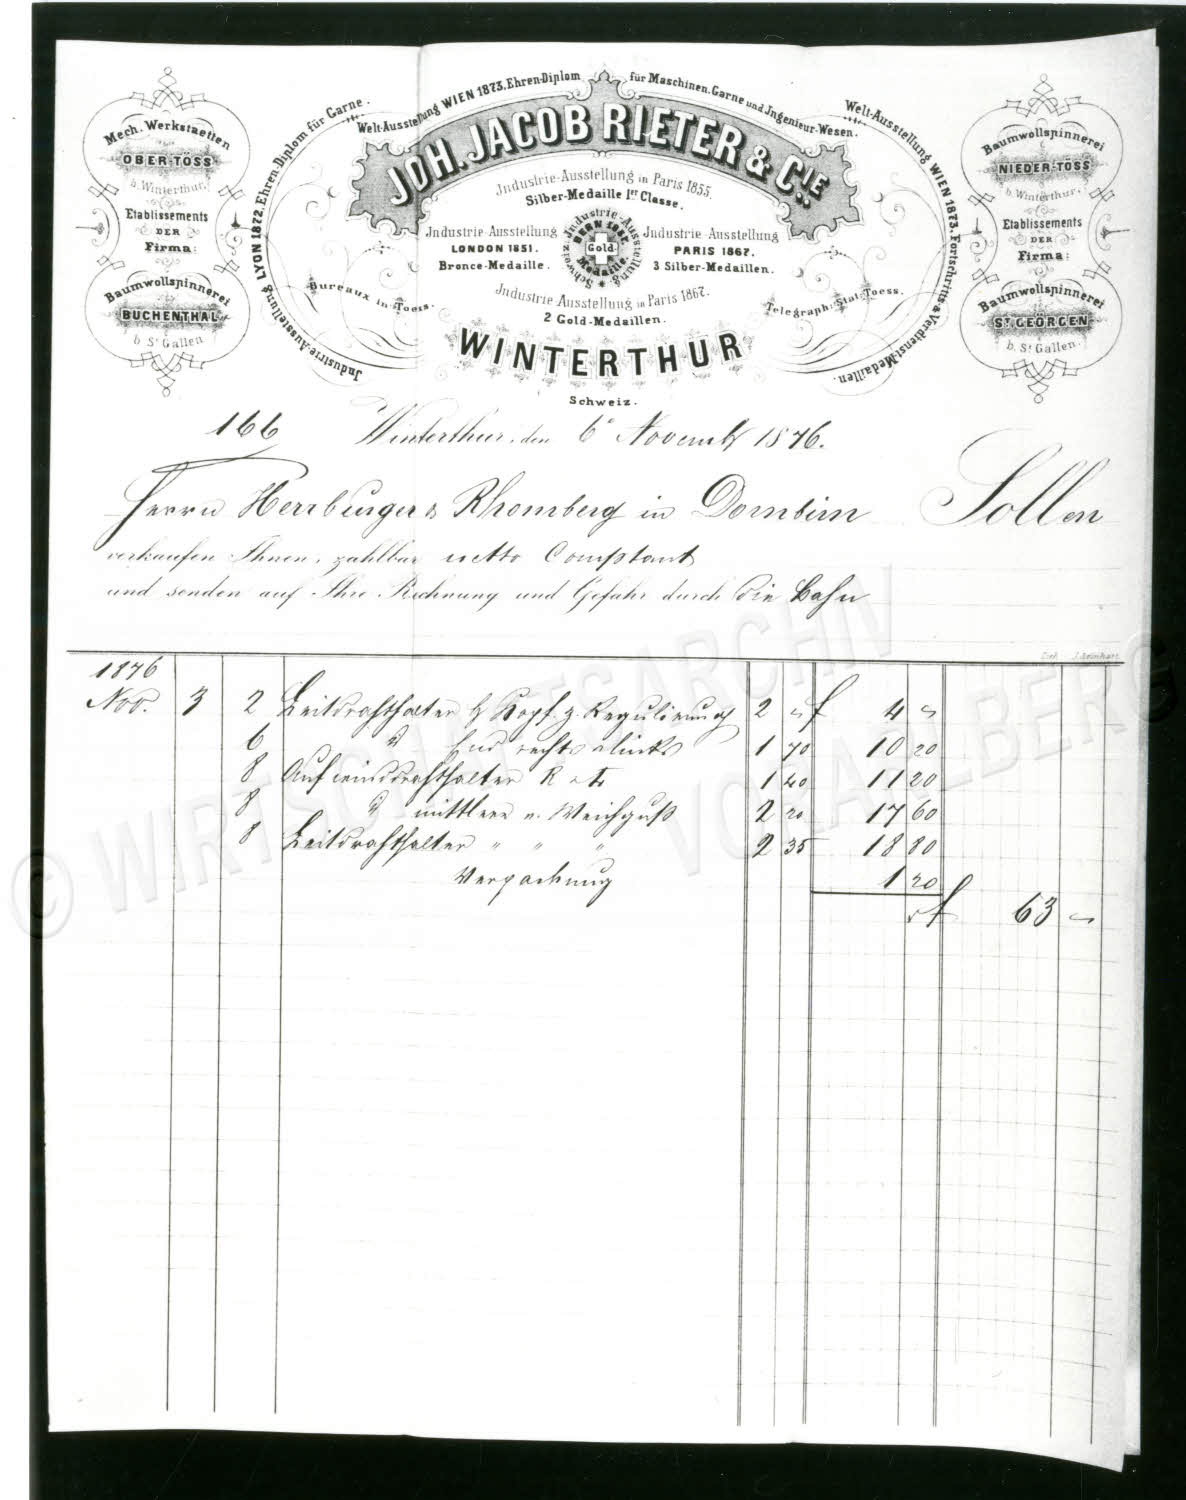 Welt-Ausstellung WIEN 1873, Ehren-Diplom für Maschinen, Garne und Ingenieur-Wesen.
Industrie-Ausstellung LYON 1872, Ehren-Diplom für Garne.
Welt-Ausstellung WIEN 1873, Fortschritts & Verdienst-Medaillen.
JOH. JACOB RIETER & CIE.
Mech. Werkstaetten
OBER-TÖSS
b. Winterthur.
Etablissements
DER
Firma:
Baumwollspinnerei
BUCHENTHAL
b. St Gallen
Industrie-Ausstellung in Paris 1855.
Silber-Medaille 1er Classe.
Industrie-Ausstellung
LONDON 1851.
Bronce-Medaille.
Schweiz. Industrie-Ausstellung
BERN 1857.
Gold
Medaille.
Industrie-Ausstellung
PARIS 1867.
3 Silber-Medaillen.
Industrie Ausstellung in Paris 1867.
2 Gold-Medaillen.
Bureaux in Toess.
Telegraph-Stat: Toess.
WINTERTHUR
Schweiz.
Baumwollspinnerei
NIEDER-TÖSS
b. Winterthur.
Etablissements
DER
Firma:
Baumwollspinnerei
ST GEORGEN
b. St Gallen.
166 Winterthur, den 6 Novemb 1876.
Herrn Herrburger & Rhomberg in Dornbirn Sollen
verkaufen Ihnen, zahlbar netto Comptant
und senden auf Ihre Rechnung und Gefahr durch die Bahn
1876
Nov. 3 2 Leitdrahthalter Kopf z. Regulierung 2 " f 4 "
6 d° rechts & links 1 70 10 20
8 Aufwinddrahthalter R & L 1 40 11 20
8 d° mittlere v. Weichguß 2 20 17 60
8 Leitdrahthalter " " " 2 35 18 80
Verpackung 1 20
f 63 "
© WIRTSCHAFTSARCHIV VORARLBERG